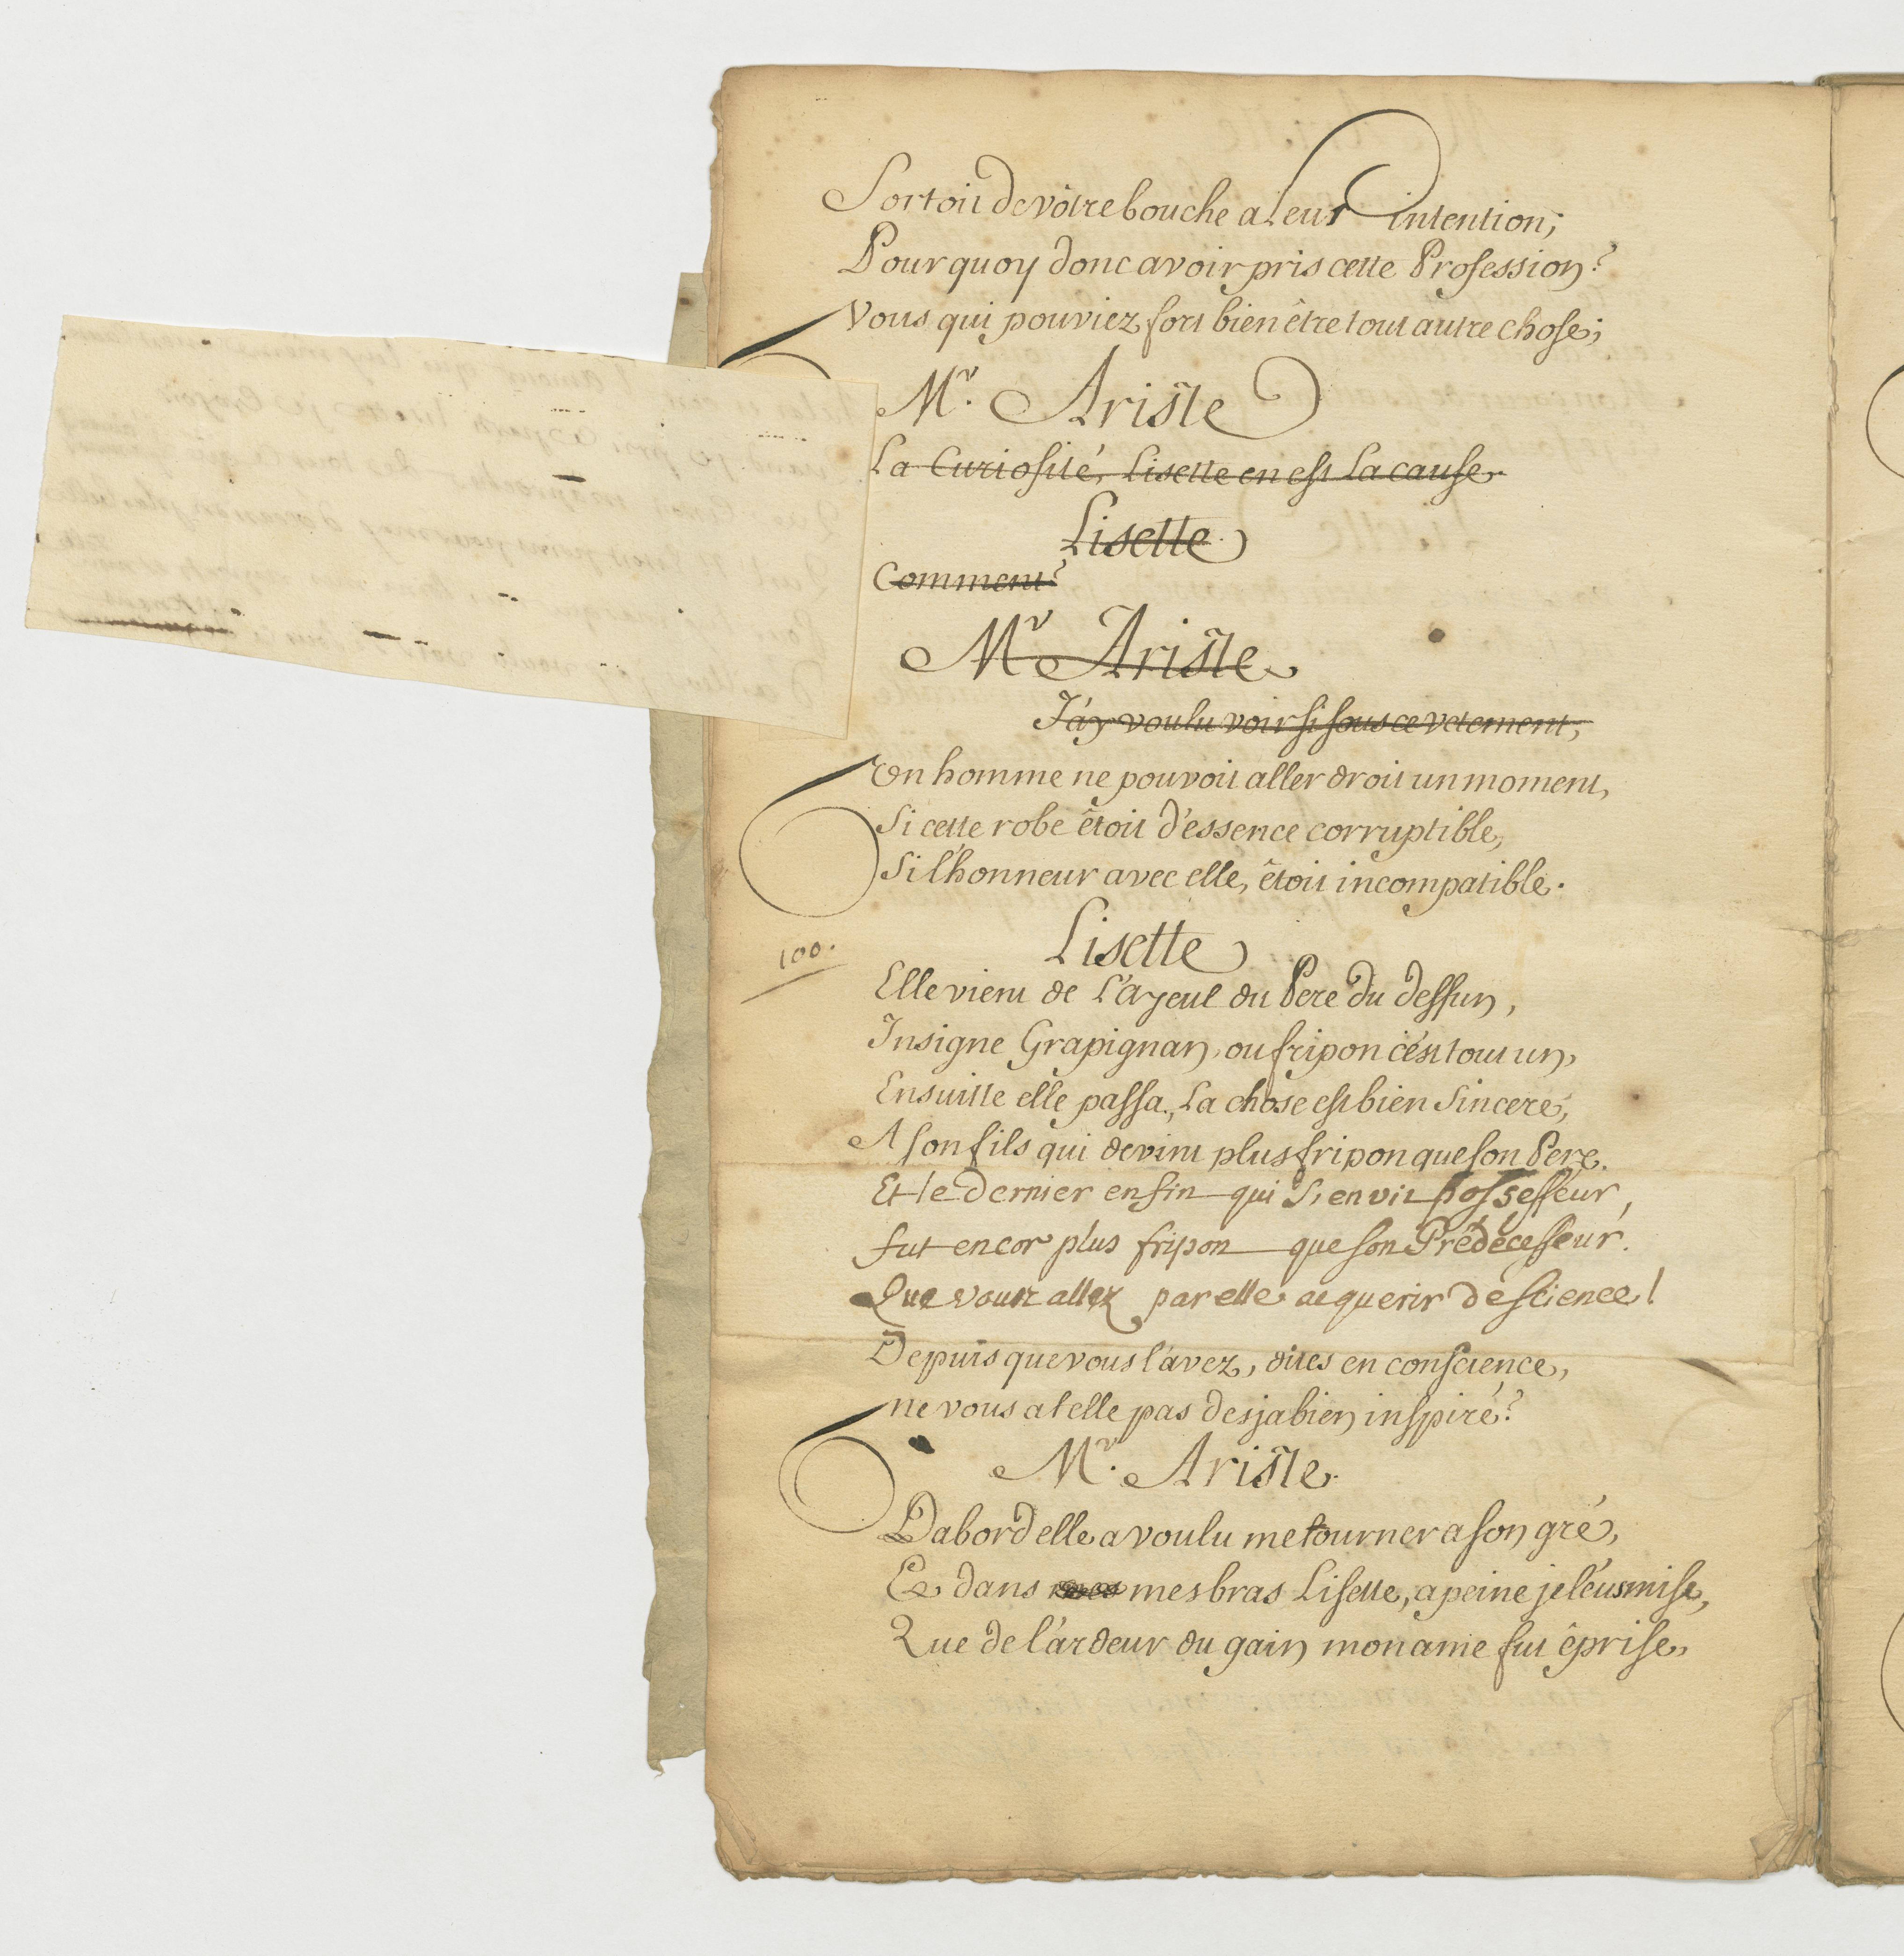 Sortoit de vôtre bouche a leur intention;
Pourquoy donc avoir pris cette Profession?
Vous qui pouviez fort bien être tout autre chose;
Mr. Ariste
La Curiosité, Lisette en est La cause.
Lisette
Comment?
Mr Ariste
J'ay voulu voir si sous ce vetement,
un homme ne pouvoit aller droit un moment,
Si cette robe étoit d'essence corruptible,
Si l'honneur avec elle, étoit incompatible.
Lisette
100.
Elle vient de L'ayeul du Pere du deffun,
Insigne Grapignan, ou fripon c'ést tout un,
Ensuitte elle passa, La chose est bien Sincere,
A son fils qui devint plus fripon que son Pere.
Et le dernier enfin qui s'en vit possesseur,
fut encor plus fripon que son Prédécesseur.
Que vous allez par elle acquerir de science!
Depuis que vous l'avez, dites en conscience,
ne vous a t elle pas desja bien inspiré?
Mr. Ariste.
Dabord elle a voulu me tourner a son gré,
Et dans mes bras Lisette, a peine je l'eus mise,
Que de l'ardeur du gain mon ame fut éprise,